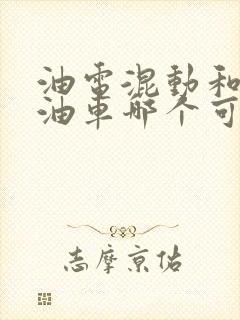 油電混動和
油車哪个可
志摩京佑